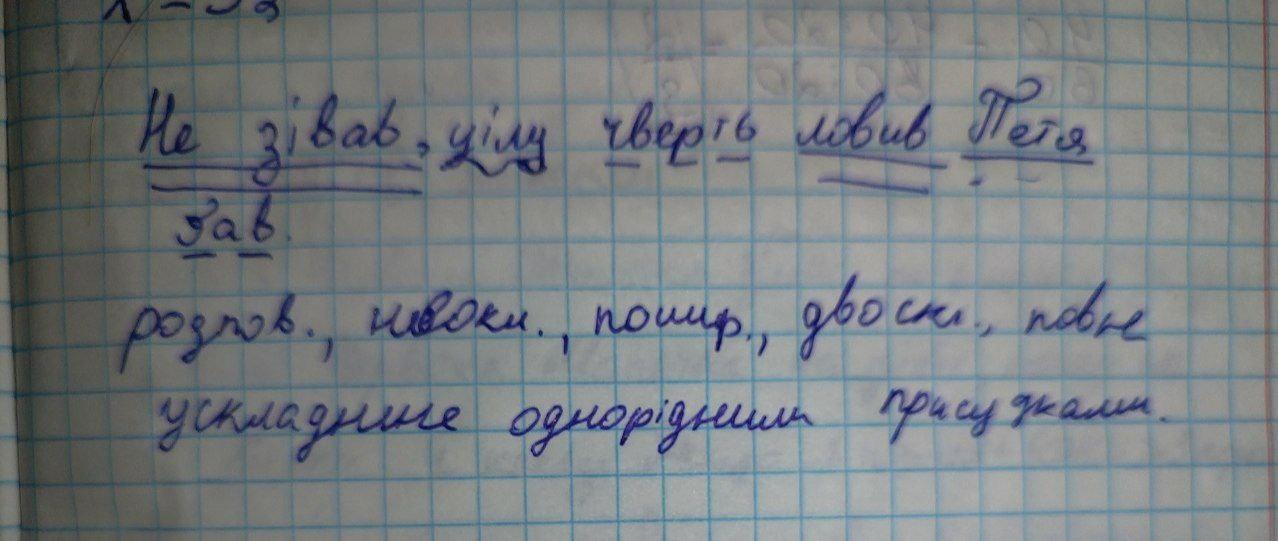 Не зівав, цілу чверть ловив Петя
Гав.
розпов., неокл., пошир., двоскл., повне
ускладнине однорідними присудками.